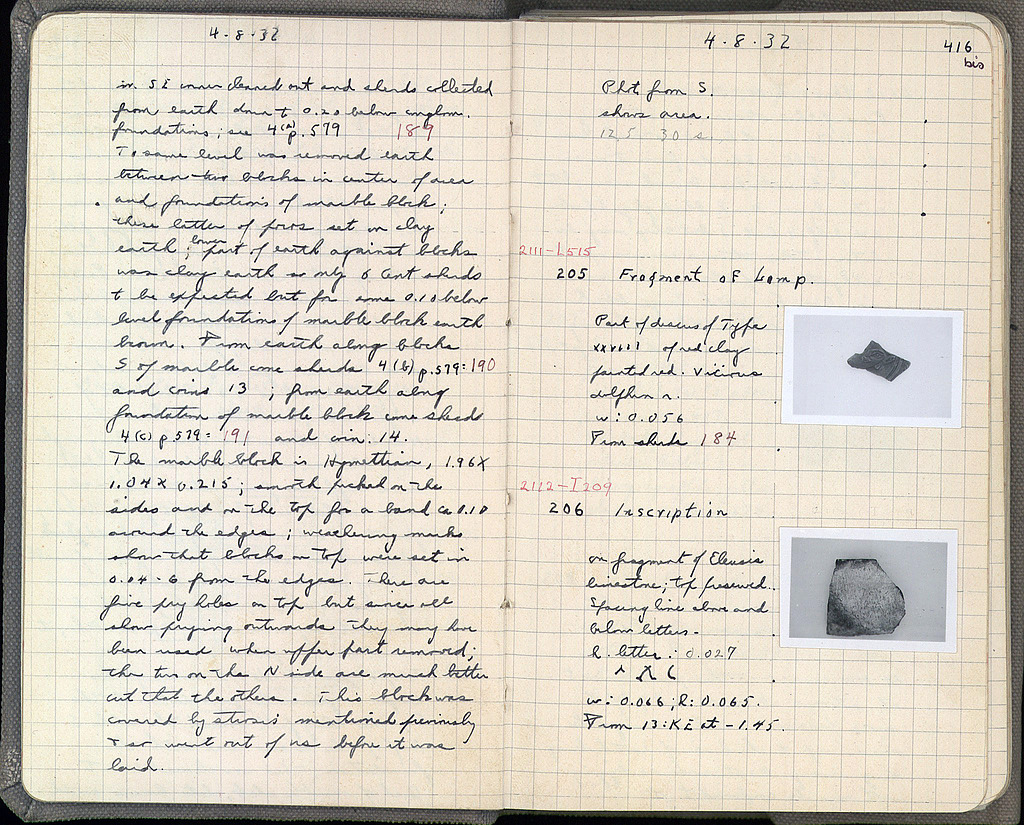 4-8-32
in SE corner cleaned out and sherds collected
from earth down to 0.20 below conglom.
foundations; see 4(a) p. 579 189
To same level was removed earth
between two blocks in center of area
and foundations of marble block;
these latter of poros set on clay
earth; lower part of earth against blocks
was clay earth so only 6 Cent sherds
to be expected but for some 0.10 below
level foundations of marble block earth
brown. From earth along blocks
S of marble come sherds 4(b) p. 579: 190
and coins 13; from earth along
foundation of marble block come sherds
4(c) p 579: 191 and coin: 14.
The marble block is Hymettian, 1.96 X
1.04 X 0.215; smooth picked on the
sides and on the top for a band ca 0.10
around the edges; weathering marks
show that blocks on top were set in
0.04-6 from the edges. There are
five pry holes on top but since all
show prying outwards they may have
been used when upper part removed;
the two on the N side are much better
cut that the others. This block was
covered by strosis mentioned previously
+ so went out of use before it was
laid.
4-8-32
416
bis
Phot from S.
shows area.
12.5 30 s
2111-L515
205 Fragment of Lamp.
Part of discus of Type
XXVIII of red clay
painted red. Vicious
dolphin r.
w: 0.056
From sherds 184
2112-I209
206 Inscription
on fragment of Eleusis
limestone; top preserved.
Spacing line above and
below letters.
h. letter: 0.027
w: 0.066; h: 0.065.
From 13:KE at -1.45.